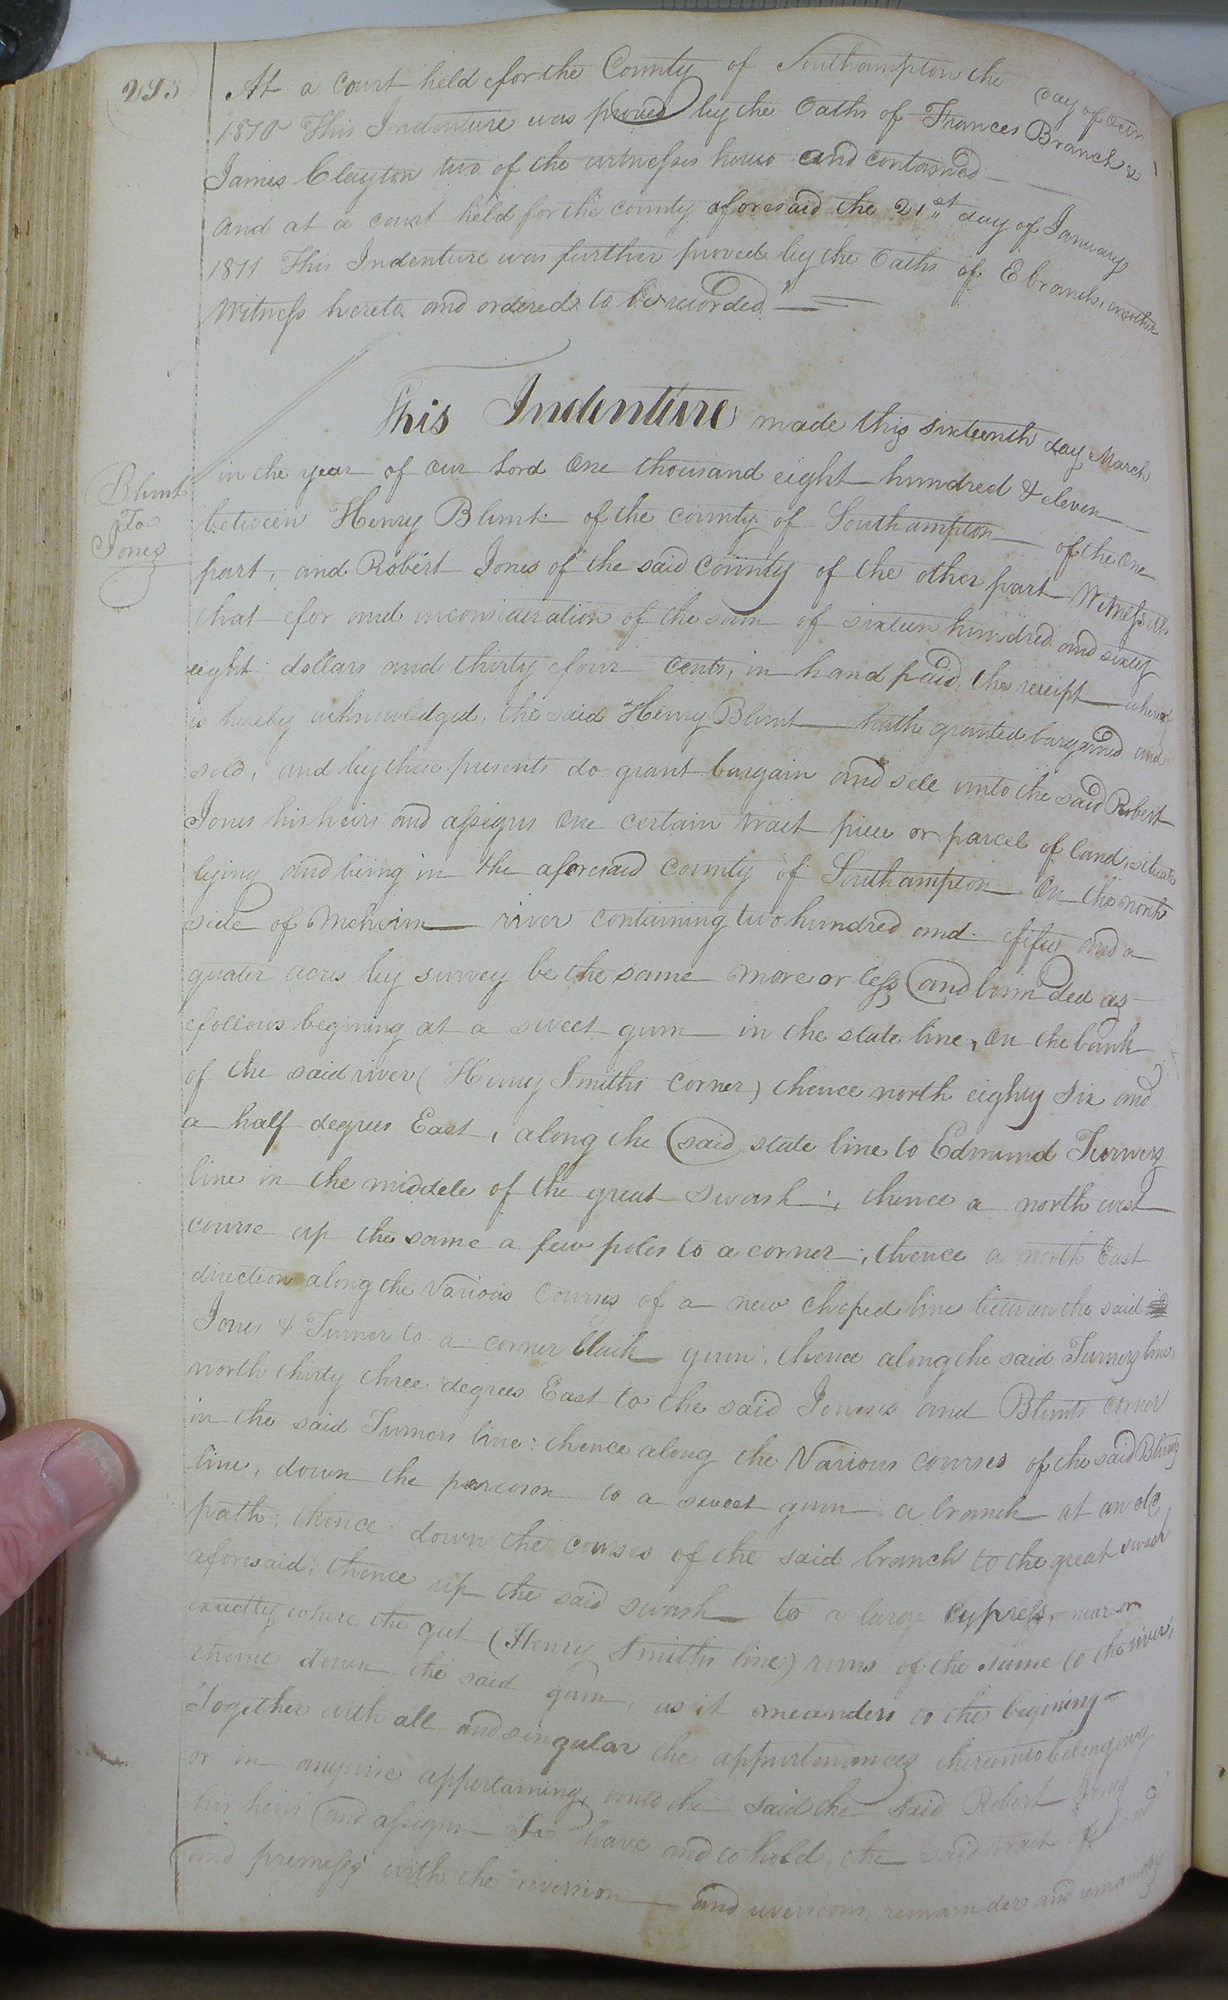 293
At a court held for the County of Southampton the day of
1810 This Indenture was proved by the Oaths of Frances Branch &
James Clayton two of the witnesses hereto and contained
and at a court held for the county aforesaid the 21st day of January
1811 This Indenture was further proved by the Oaths of E branch, another
Witness hereto and ordered to be recorded
This Indenture made this sixteenth day March
in the year of our Lord One thousand eight hundred & eleven
Blunt
To
Jones
between Henry Blunt of the county of Southampton of the One
part, and Robert Jones of the said county of the other part Witnesseth
that for and inconsideration of the sum of sixteen hundred and sixty
eight dollars and thirty four cents, in hand paid, the receipt whereof
is hereby acknowledged, the said Henry Blunt hath granted bargained and
sold, and by these presents do grant bargain and sell unto the said Robert
Jones his heirs and assigns One certain tract piece or parcel of land, situate
lying and being in the aforesaid county of Southampton On the north
side of Meherin river containing two hundred and fifty and a
quater acres by survey be the same more or less and bounded as
follows begining at a sweet gum in the state line, On the bank
of the said river (Henry Smiths corner) thence north eighty six and
a half degrees East, along the said state line to Edmund Turners
line in the middle of the great swash; thence a north west
course up the same a few poles to a corner; thence a north East
direction along the Various courses of a new choped line between the said
Jones & Turner to a corner black gum; thence along the said Turners line,
north thirty three degrees East to the said Joneses and Blunts corner
in the said Turners line: thence along the Various courses of the said Blunts
line, down the porcoson to a sweet gum a branch at an old
path; thence down the courses of the said branch to the great swash
aforesaid; thence up the said swash to a large cypress, near or
exactly where the gut (Henry Smiths line) runs of the same to the river;
thence down the said gum, as it meanders to the begining
Together with all and singular the appurtenances thereunto belonging
or in anywise appertaining, unto the said the said Robert Jones
his heirs and assigns To have and to hold, the said tract of land
and premises with the reversion and reversions, remainders and